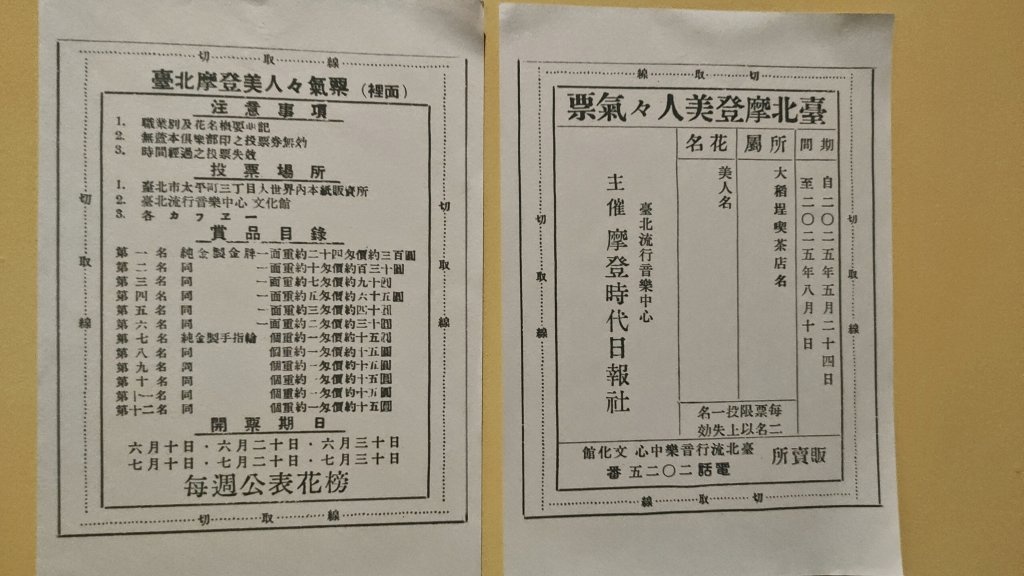 切取線
臺北摩登美人々氣票(裡面)
注意事項
1. 職業別及花名要並記
2. 無蓋本俱樂部印之投票券無効
3. 時間經過之投票失效
投票場所
1. 臺北市太平町三丁目大世界內本紙販賣所
2. 臺北流行音樂中心 文化館
3. 各カフヱー
賞品目錄
第一名 純金製金牌 一面重約二十四匁價約三百圓
第二名 同 一面重約十匁價約百三十圓
第三名 同 一面重約七匁價約九十圓
第四名 同 一面重約五匁價約六十五圓
第五名 同 一面重約三匁價約四十圓
第六名 同 一面重約二匁價約三十圓
第七名 純金製手指輪 個重約一匁價約十五圓
第八名 同 個重約一匁價約十五圓
第九名 同 個重約一匁價約十五圓
第十名 同 個重約一匁價約十五圓
第十一名 同 個重約一匁價約十五圓
第十二名 同 個重約一匁價約十五圓
開票期日
六月十日・六月二十日・六月三十日
七月十日・七月二十日・七月三十日
每週公表花榜
切取線
切取線
切取線
切取線
臺北摩登美人々氣票
期間
自二〇二五年五月二十四日
至二〇二五年八月十日
所屬
大稻埕喫茶店名
花名
美人名
每票限投一名
二名以上失効
臺北流行音樂中心
主催 摩登時代日報社
販賣所
臺北流行音樂中心 文化館
電話二〇二五番
切取線
切取線
切取線
切取線